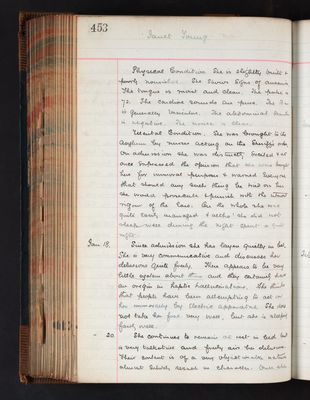 453
Janet Young
Physical Condition. She is slightly built &
poorly nourished. She shows signs of anaemia
The tongue is moist and clean. The pulse is
72. The cardiac sounds are pure. The
is generally
is negative. The urine is clear.
Mental Condition. She was brought to the
Asylum by nurses acting on the Sheriff's order
On admission she was distinctly excited &
once expressed the opinion that
her for immoral purposes & warned everyone
that should any such thing be tried on her
she would prosecute & punish with the utmost
rigour of the law. On the whole she was
quite easily managed & altho' she did not
sleep well during the night spent a
night.
Jan. 18. Since admission she has lain quietly in bed.
She is very communicative and discusses her
delusions quite freely. There appears to be very
little system about them and they certainly have
an origin in haptic hallucinations. She thinks
that people have been attempting to act on
her immorally by electric apparatus. She does
not take her food very well, but she is sleeping
fairly well.
" 20 She continues to remain at rest in bed but
is very talkative and freely airs her delusions.
Their content is of a very objectionable nature
almost entirely sexual in character. Once she